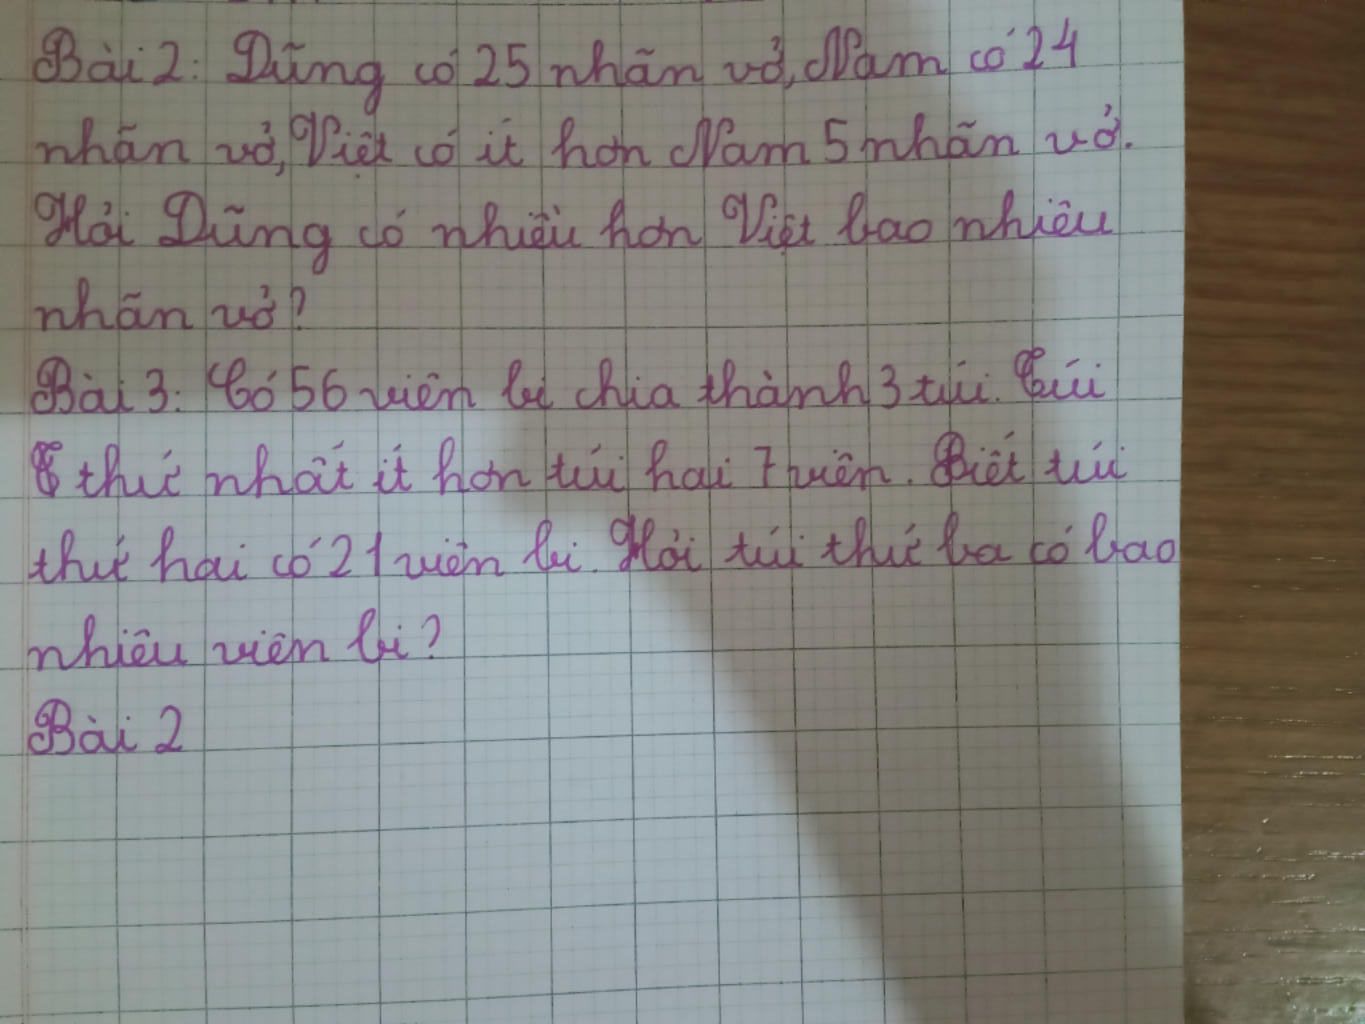 Bài 2: Dũng có 25 nhãn vở, Nam có 24
nhãn vở, Việt có ít hơn Nam 5 nhãn vở.
Hỏi Dũng có nhiều hơn Việt bao nhiêu
nhãn vở?
Bài 3: Có 56 viên bi chia thành 3 túi. Túi
thứ nhất ít hơn túi hai 7 viên. Biết túi
thứ hai có 21 viên bi. Hỏi túi thứ ba có bao
nhiêu viên bi?
Bài 2